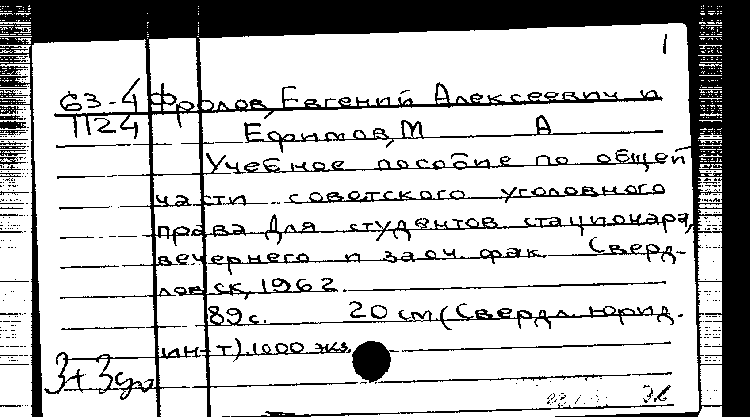 1
63-4 Фролов, Евгений Алексеевич и
1124
Ефимов, М А
Учебное пособие по общей
части советского уголовного
права для студентов стационара,
вечернего и заоч. фак. Сверд-
ловск, 1962.
89с. 20 см (Свердл. юрид.
ин-т). 1000 экз.
3+3